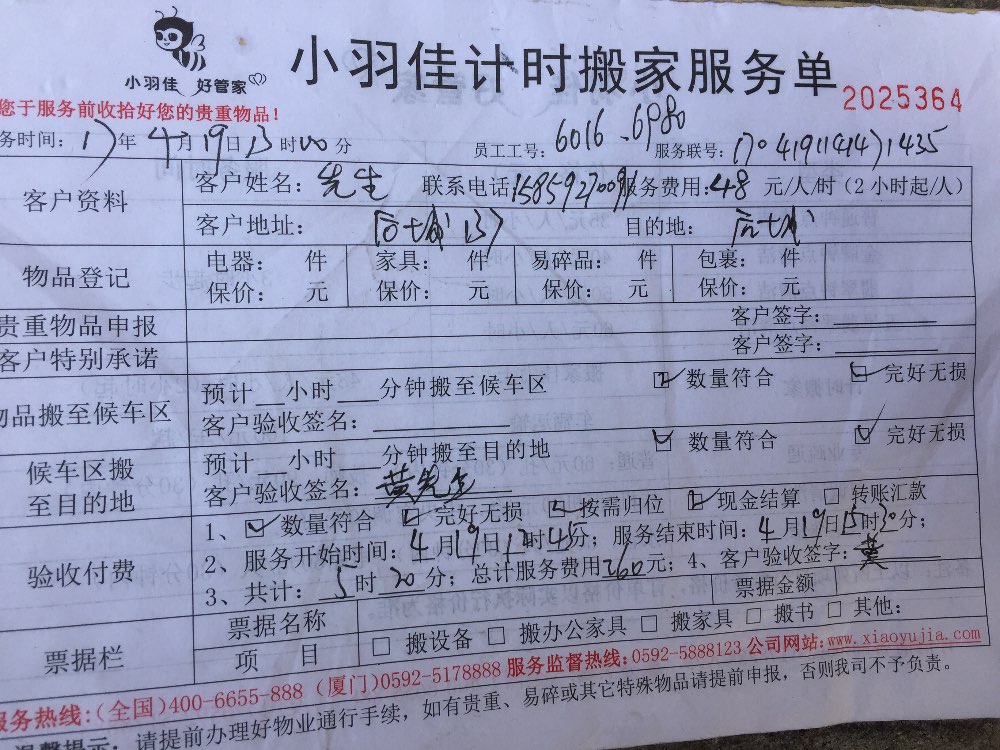 小羽佳 好管家
小羽佳计时搬家服务单
2025364
您于服务前收拾好您的贵重物品！
务时间：17年4月19日13时00分 员工工号：6016.6980 服务联号：170419114141435
客户资料
客户姓名：先生 联系电话 服务费用：48元/人/时（2小时起/人）
客户地址： 目的地：
物品登记
电器： 件 家具： 件 易碎品： 件 包裹： 件
保价： 元 保价： 元 保价： 元 保价： 元
贵重物品申报 客户签字：
客户特别承诺 客户签字：
物品搬至候车区
预计__小时___分钟搬至候车区 数量符合 完好无损
客户验收签名：
候车区搬至目的地
预计__小时___分钟搬至目的地 数量符合 完好无损
客户验收签名：黄先生
验收付费
1、数量符合 完好无损 按需归位 现金结算 转账汇款
2、服务开始时间：4月19日12时45分；服务结束时间：4月19日15时30分；
3、共计：5时20分；总计服务费用260元；4、客户验收签字：黄
票据栏
票据名称 票据金额
项 目 □ 搬设备 □ 搬办公家具 □ 搬家具 □ 搬书 □ 其他：
服务热线：（全国）400-6655-888（厦门）0592-5178888 服务监督热线：0592-5888123 公司网站：www.xiaoyujia.com
温馨提示：请提前办理好物业通行手续，如有贵重、易碎或其它特殊物品请提前申报，否则我司不予负责。